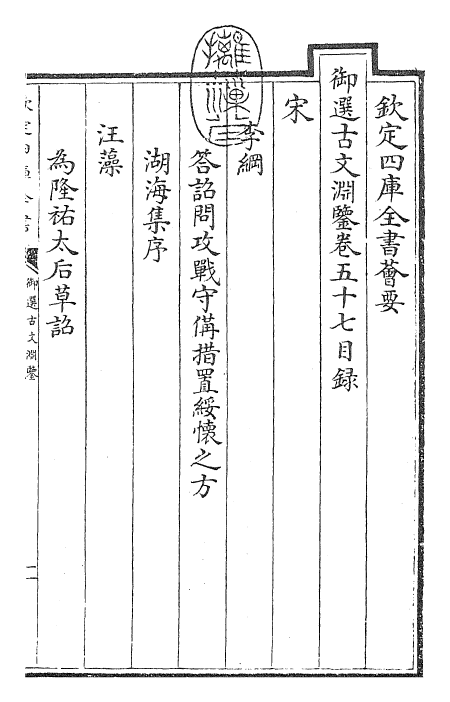 欽定四庫全書薈要
御選古文淵鑒卷五十七目録
宋
李綱
答詔問攻戰守備措置綏懷之方
湖海集序
汪藻
為隆祐太后草詔
御選古文淵鑒
一